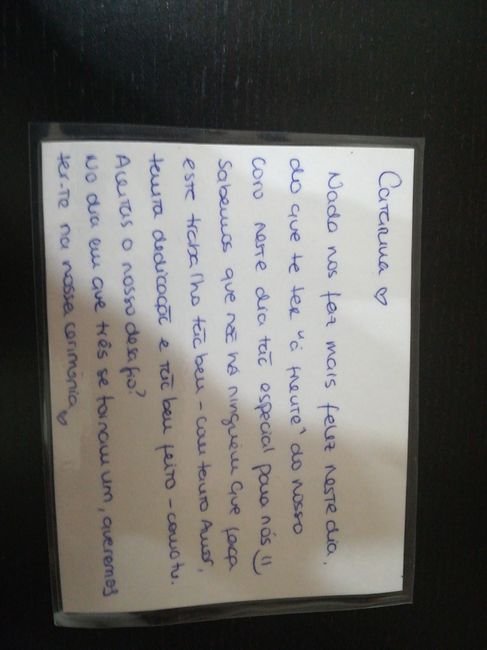 Catarina ♡
Nada nos fez mais feliz neste dia,
do que te ter "à frente" do nosso
coro neste dia tão especial para nós =)
Sabemos que não há ninguém que faça
este trabalho tão bem - com tanto Amor,
tanta dedicação e tão bem feito - como tu.
Aceitas o nosso desafio?
No dia em que três se tornam um, queremos
ter-te na nossa cerimónia ♡